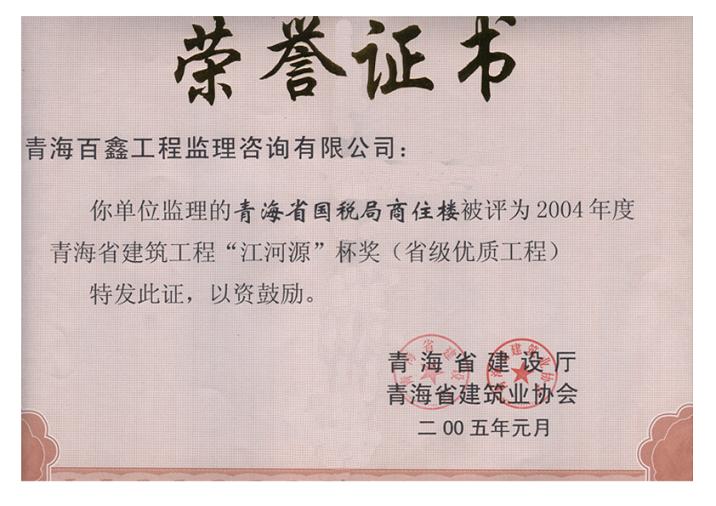 荣誉证书
青海百鑫工程监理咨询有限公司：
你单位监理的青海省国税局商住楼被评为2004年度
青海省建筑工程“江河源”杯奖（省级优质工程）
特发此证，以资鼓励。
青海省建设厅
青海省建筑业协会
二00五年元月